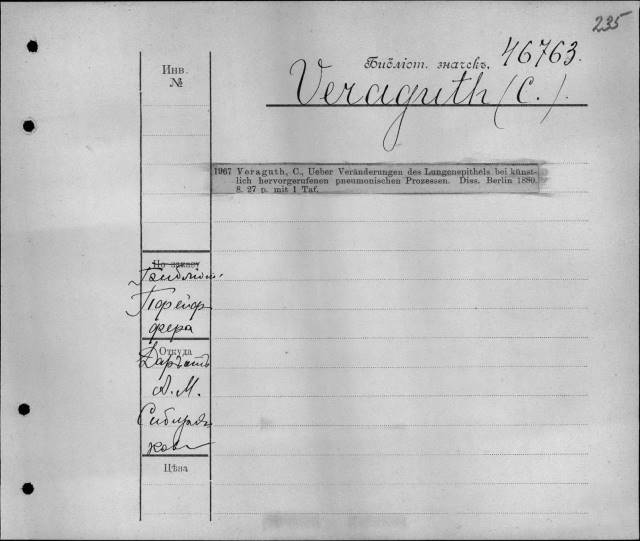 235
Библіот. значекъ, 46763.
Veraguth (C.).
Инв.
№
1967 Veraguth, C., Ueber Veränderungen des Lungenepithels bei künst-
lich hervorgerufenen pneumonischen Prozessen. Diss. Berlin 1880.
8. 27 p. mit 1 Taf.
По заказу
Библіот.
Пфейф
фера
Откуда
Даръ
А. М.
Сибиряк
Цѣна